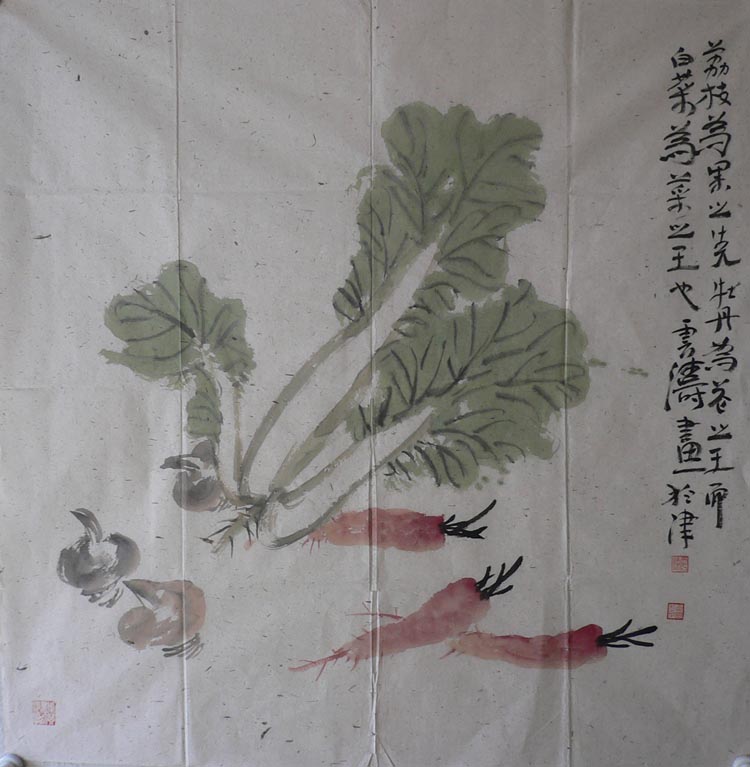 荔枝為果之先牡丹為花之王而
白菜為菜之王也雲濤畫於津